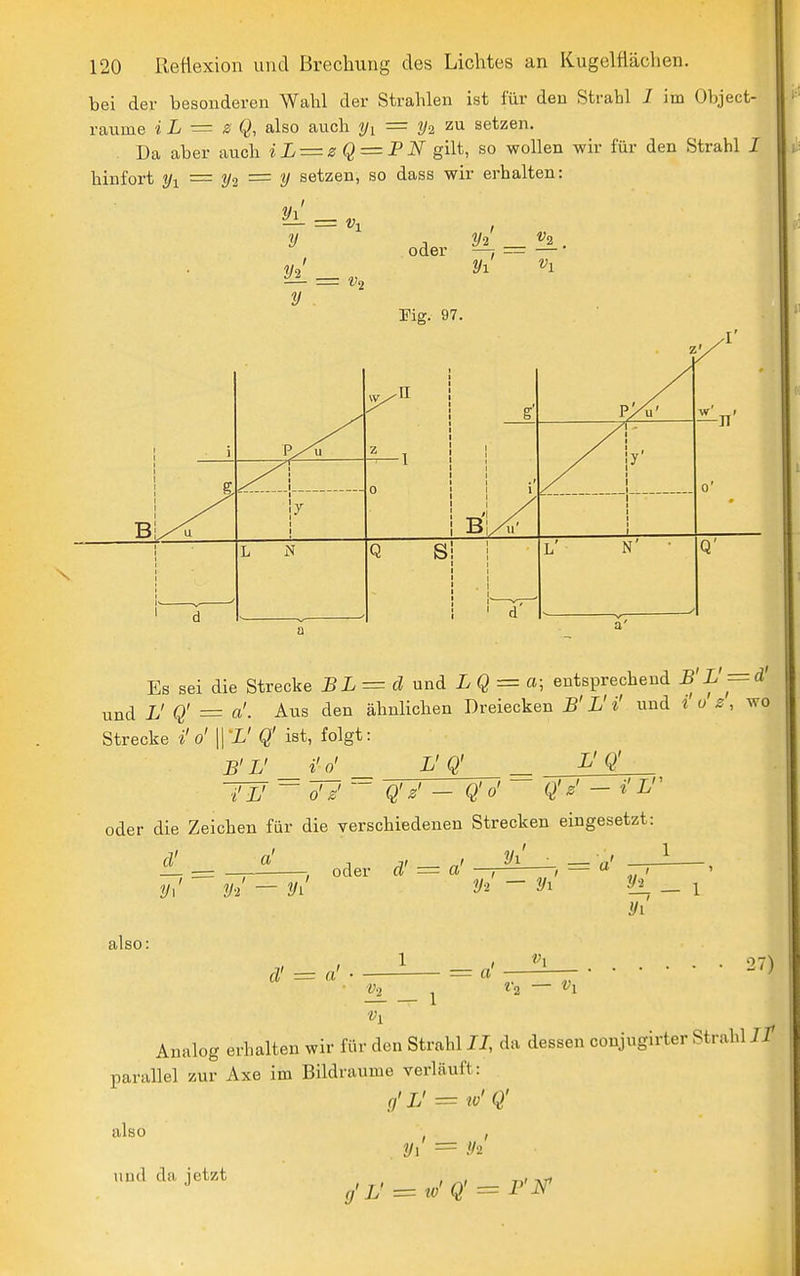 120 Reflexion und Brechung des Lichtes an Kugelflächen.
bei der besonderen Wahl der Strahlen ist für den Strahl I im Object-
raume i L = z Q, also auch y₁ = y₂ zu setzen.
Da aber auch i L = z Q = P N gilt, so wollen wir für den Strahl I
hinfort y₁ = y₂ = y setzen, so dass wir erhalten:
y₁'/y = v₁
oder y₂'/y₁' = v₂/v₁.
y₂'/y = v₂
Fig. 97.
I'
z'
w II g' P' u' w' II'
i P u z I y'
g o i' o'
y
B u B' u'
L N Q S L' N' Q'
d d'
a a'
Es sei die Strecke B L = d und L Q = a; entsprechend B' L' = d'
und L' Q' = a'. Aus den ähnlichen Dreiecken B' L' i' und i' o' z', wo
Strecke i' o' || L' Q' ist, folgt:
B' L'/i' L' = i' o'/o' z' = L' Q'/(Q' z' — Q' o') = L' Q'/(Q' z' — i' L')
oder die Zeichen für die verschiedenen Strecken eingesetzt:
d'/y₁' = a'/(y₂' — y₁'), oder d' = a' y₁'/(y₂' — y₁') = a' 1/(y₂'/y₁' — 1),
also:
d' = a' · 1/(v₂/v₁ — 1) = a' v₁/(v₂ — v₁) . . . . . . 27)
Analog erhalten wir für den Strahl II, da dessen conjugirter Strahl II'
parallel zur Axe im Bildraume verläuft:
g' L' = w' Q'
also
y₁' = y₂'
und da jetzt
g' L' = w' Q' = P' N'